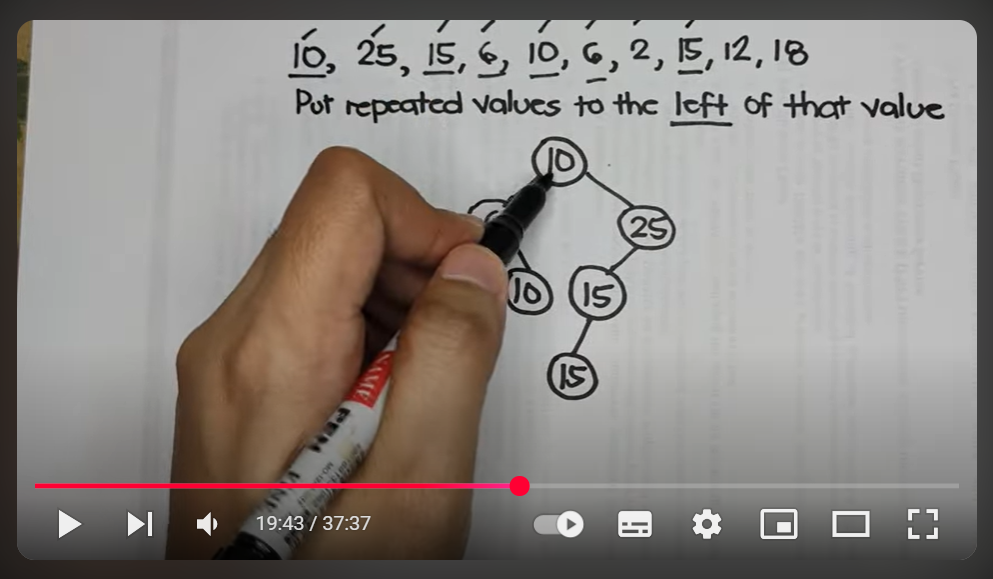 10, 25, 15, 6, 10, 6, 2, 15, 12, 18
Put repeated values to the left of that value
10
25
10
15
15
NAME
PEN
19:43 / 37:37